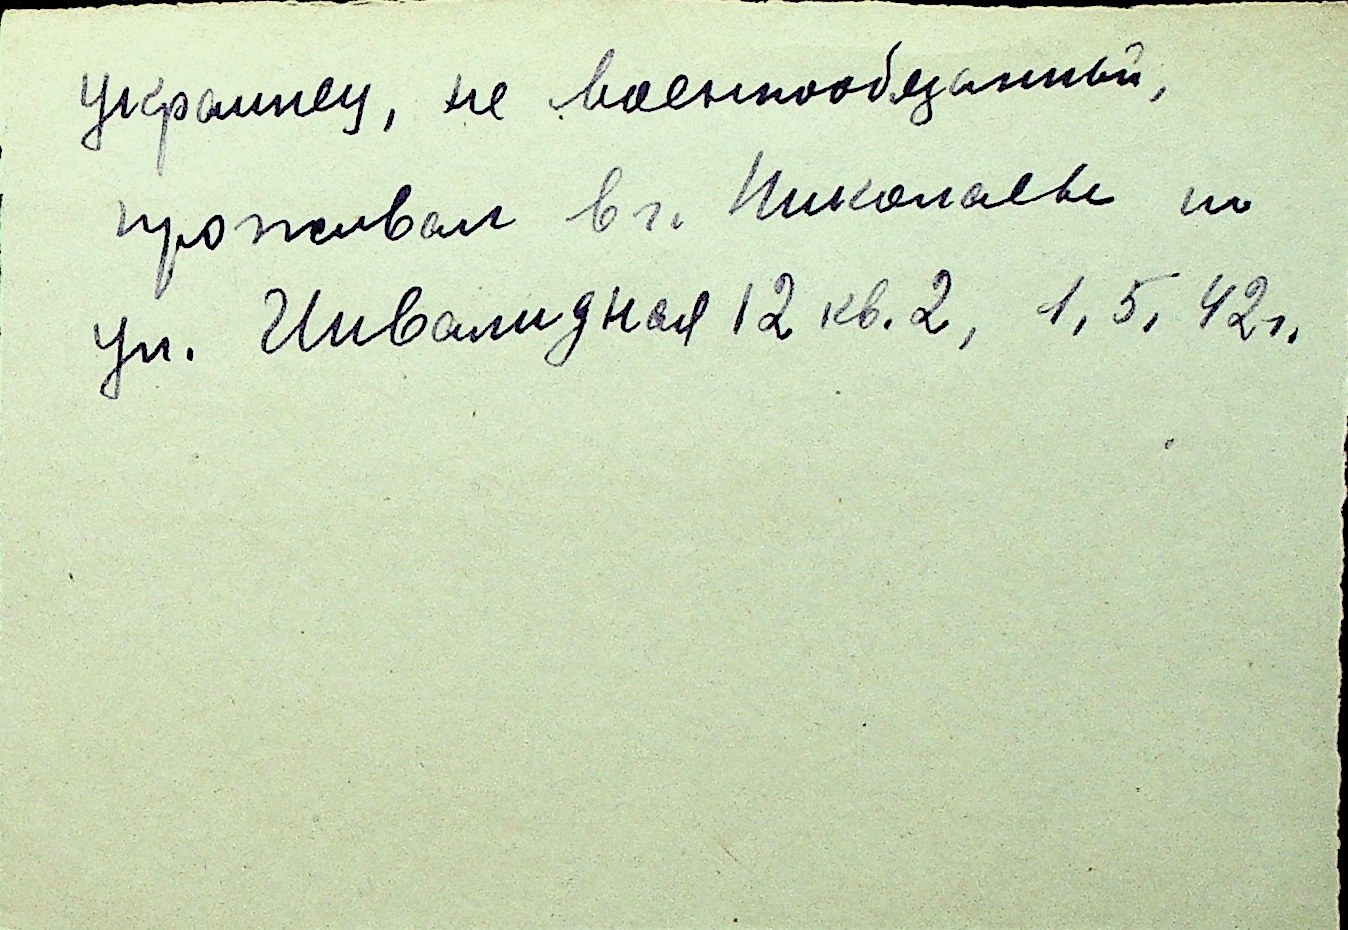 украинец, не военнообязанный,
проживал в г. Николаеве по
ул. Инвалидная 12 кв. 2, 1.5.42г.